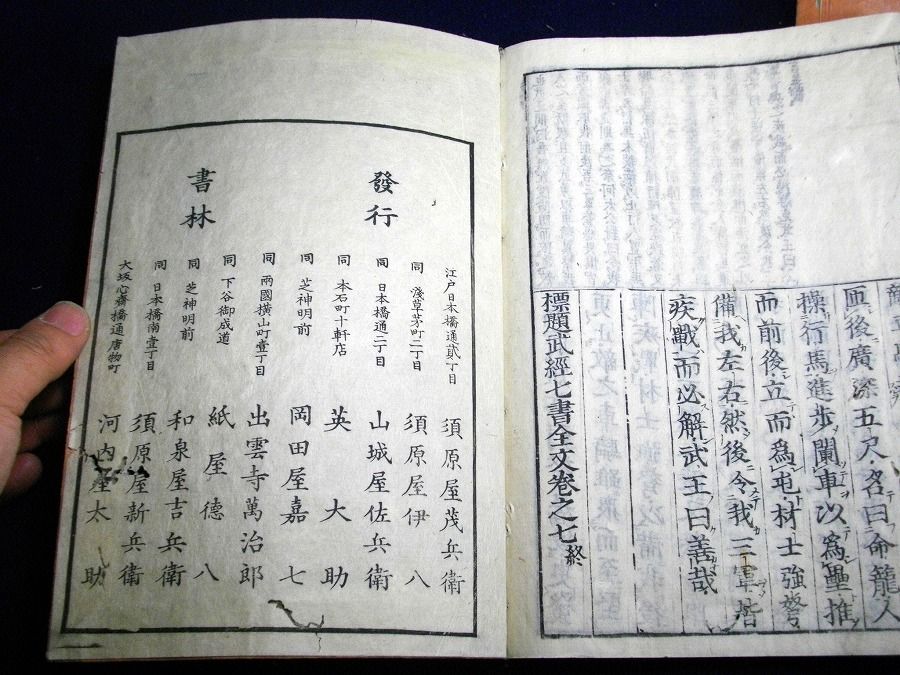 匝後廣深五尺名曰命籠人
操行馬進步闌車以爲壘推
而前後立而爲屯材士強弩
備我左右然後令我三軍皆
疾戰而必解武王曰善哉
標題武經七書全文卷之七終
發行
書林
江戸日本橋通貳丁目 須原屋茂兵衛
同 淺草茅町二丁目 須原屋伊八
同 日本橋通二丁目 山城屋佐兵衛
同 本石町十軒店 英大助
同 芝神明前 岡田屋嘉七
同 兩國横山町壹丁目 出雲寺萬治郎
同 下谷御成道 紙屋德八
同 芝神明前 和泉屋吉兵衛
同 日本橋南壹丁目 須原屋新兵衛
大坂心齋橋通唐物町 河内屋太助